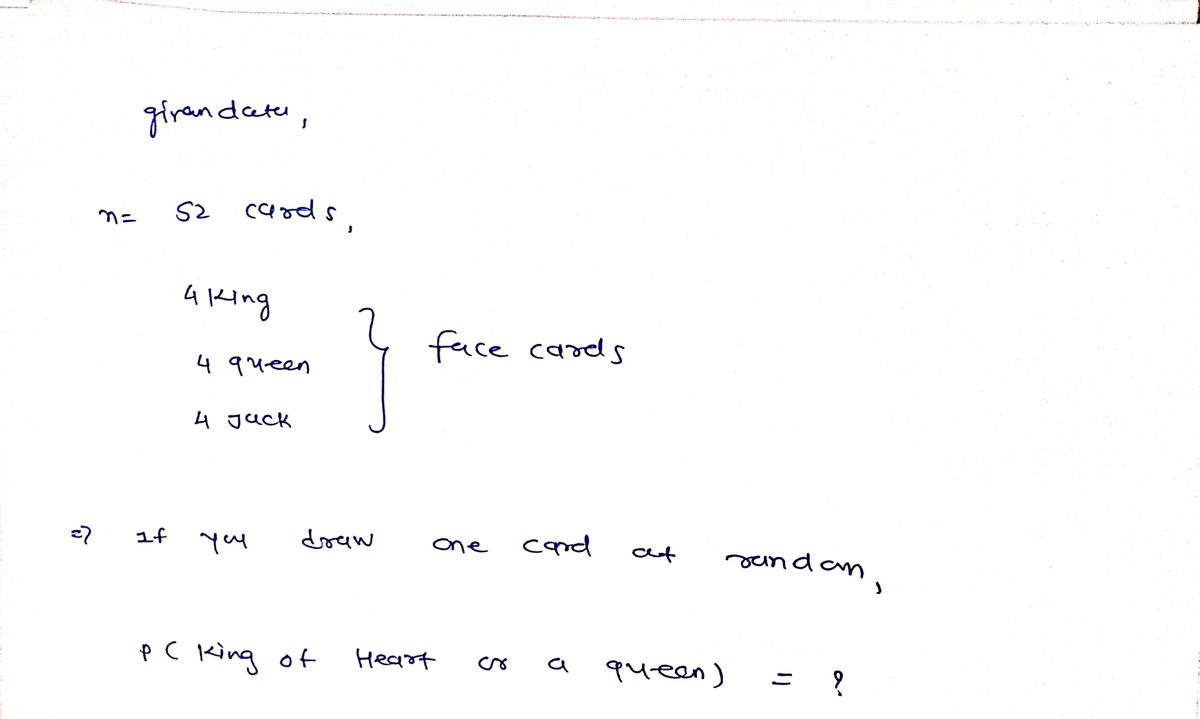 given data,
n= 52 cards,
4 King
4 queen
4 Jack
} face cards
=> If you draw one card at random,
P ( King of Heart or a queen) = ?